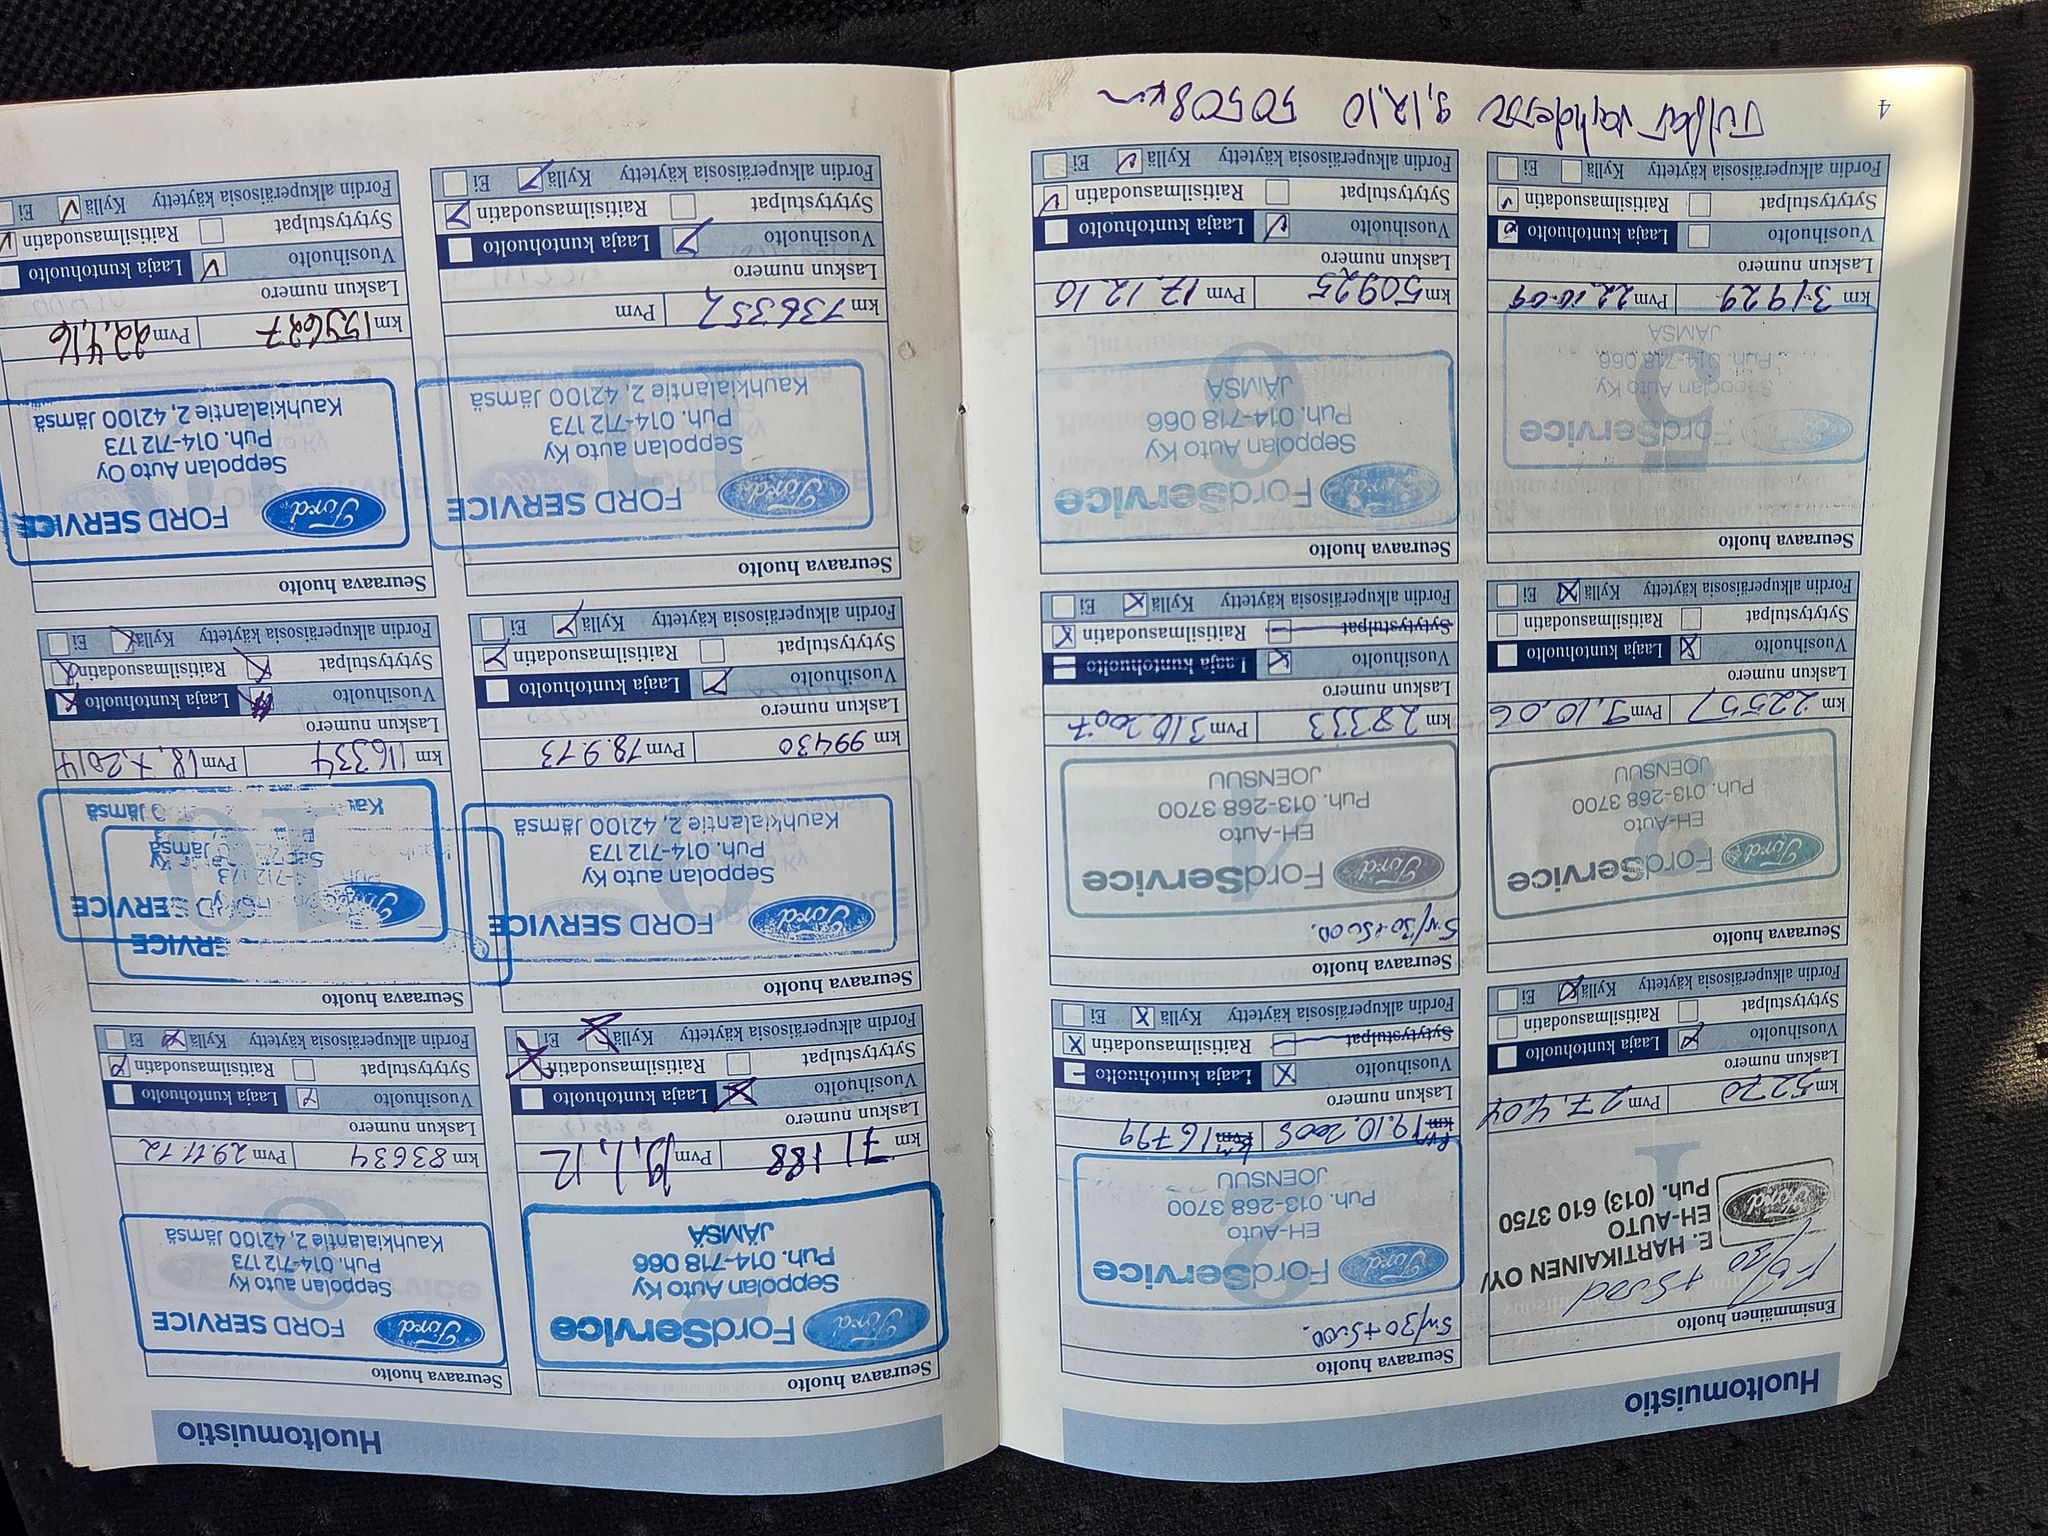 Huoltomuistio
Ensimmäinen huolto
E. HARTIKAINEN OY
EH-AUTO
Puh. (013) 610 3750
Ford
km 5270 Pvm 27.4.04
Laskun numero
Vuosihuolto Laaja kuntohuolto
Sytytystulpat Raitisilmasuodatin
Fordin alkuperäisosia käytetty Kyllä Ei
Seuraava huolto
5w/30 + 5000.
Ford FordService
EH-Auto
Puh. 013-268 3700
JOENSUU
Pvm 19.10.2005 km 16799
Laskun numero
Vuosihuolto Laaja kuntohuolto
Sytytystulpat Raitisilmasuodatin
Fordin alkuperäisosia käytetty Kyllä Ei
Seuraava huolto
Ford FordService
EH-Auto
Puh. 013-268 3700
JOENSUU
km 22557 Pvm 9.10.06
Laskun numero
Vuosihuolto Laaja kuntohuolto
Sytytystulpat Raitisilmasuodatin
Fordin alkuperäisosia käytetty Kyllä Ei
Seuraava huolto
5w/30 + 5000.
Ford FordService
EH-Auto
Puh. 013-268 3700
JOENSUU
km 28333 Pvm 3.10.2007
Laskun numero
Vuosihuolto Laaja kuntohuolto
Sytytystulpat Raitisilmasuodatin
Fordin alkuperäisosia käytetty Kyllä Ei
Seuraava huolto
Ford FordService
Seppolan Auto Ky
Puh. 014-718 066
JÄMSÄ
km 31929 Pvm 22.10.09
Laskun numero
Vuosihuolto Laaja kuntohuolto
Sytytystulpat Raitisilmasuodatin
Fordin alkuperäisosia käytetty Kyllä Ei
Seuraava huolto
Ford FordService
Seppolan Auto Ky
Puh. 014-718 066
JÄMSÄ
km 50925 Pvm 17.12.10
Laskun numero
Vuosihuolto Laaja kuntohuolto
Sytytystulpat Raitisilmasuodatin
Fordin alkuperäisosia käytetty Kyllä Ei
9.12.10 50508 km
4
Huoltomuistio
Seuraava huolto
Ford FordService
Seppolan Auto Ky
Puh. 014-718 066
JÄMSÄ
km 71188 Pvm 19.1.12
Laskun numero
Vuosihuolto Laaja kuntohuolto
Sytytystulpat Raitisilmasuodatin
Fordin alkuperäisosia käytetty Kyllä Ei
Seuraava huolto
8
Ford FORD SERVICE
Seppolan auto Ky
Puh. 014-712 173
Kauhkialantie 2, 42100 Jämsä
km 83634 Pvm 29.11.12
Laskun numero
Vuosihuolto Laaja kuntohuolto
Sytytystulpat Raitisilmasuodatin
Fordin alkuperäisosia käytetty Kyllä Ei
Seuraava huolto
Ford FORD SERVICE
Seppolan auto Ky
Puh. 014-712 173
Kauhkialantie 2, 42100 Jämsä
km 99430 Pvm 18.9.13
Laskun numero
Vuosihuolto Laaja kuntohuolto
Sytytystulpat Raitisilmasuodatin
Fordin alkuperäisosia käytetty Kyllä Ei
Seuraava huolto
10
SERVICE
km 116334 Pvm 18.7.2014
Laskun numero
Vuosihuolto Laaja kuntohuolto
Sytytystulpat Raitisilmasuodatin
Fordin alkuperäisosia käytetty Kyllä Ei
Seuraava huolto
Ford FORD SERVICE
Seppolan auto Ky
Puh. 014-712 173
Kauhkialantie 2, 42100 Jämsä
km 136352 Pvm
Laskun numero
Vuosihuolto Laaja kuntohuolto
Sytytystulpat Raitisilmasuodatin
Fordin alkuperäisosia käytetty Kyllä Ei
Seuraava huolto
Ford FORD SERVICE
Seppolan Auto Oy
Puh. 014-712 173
Kauhkialantie 2, 42100 Jämsä
km 159627 Pvm 22.4.16
Laskun numero
Vuosihuolto Laaja kuntohuolto
Sytytystulpat Raitisilmasuodatin
Fordin alkuperäisosia käytetty Kyllä Ei